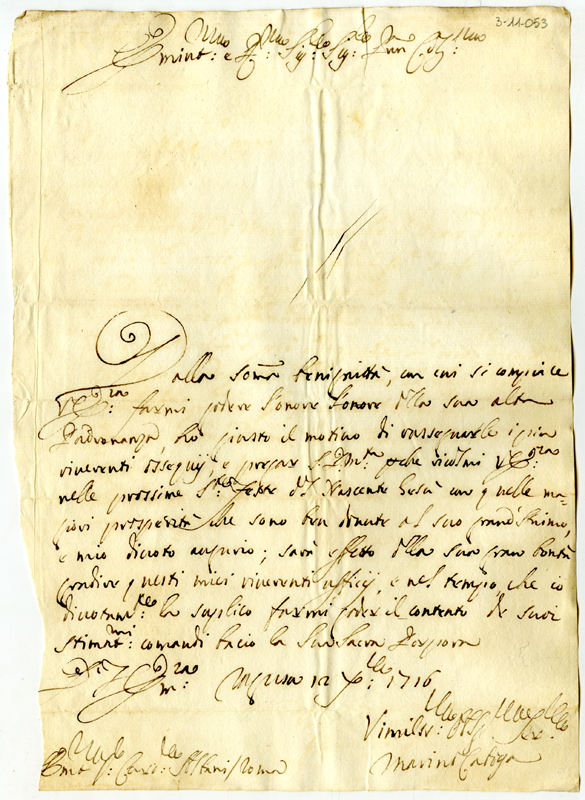 3-11-053
Emint: e R: Sig: Sig: Pron Col:mo
Dalla somã benignità, con cui si compiace
V. Em:za farmi godere l'onore l'onore della sua alta
Padronanza, hò giusto il motivo di rassegnarle i più
riverenti ossequij, e pregar S. D. M.tà che ricolmi V. Em:za
nelle prossime S.te Feste del Nascente Gesù con quelle ma-
giori prosperità che sono ben dovute al suo grand.mo
e mio divoto augurio; sarà effetto della sua gran bontà
gradire questi miei riverenti ufficij, e nel tempo che io
divotam:te la suplico farmi goder il contento de suoi
stimat:mi comandi bacio la Sua Sacra Porpora
Di V. Em:za 12 X:bre 1716
Vimiliss: Ser:
Em: Card: Albani Roma
Marino Caboga